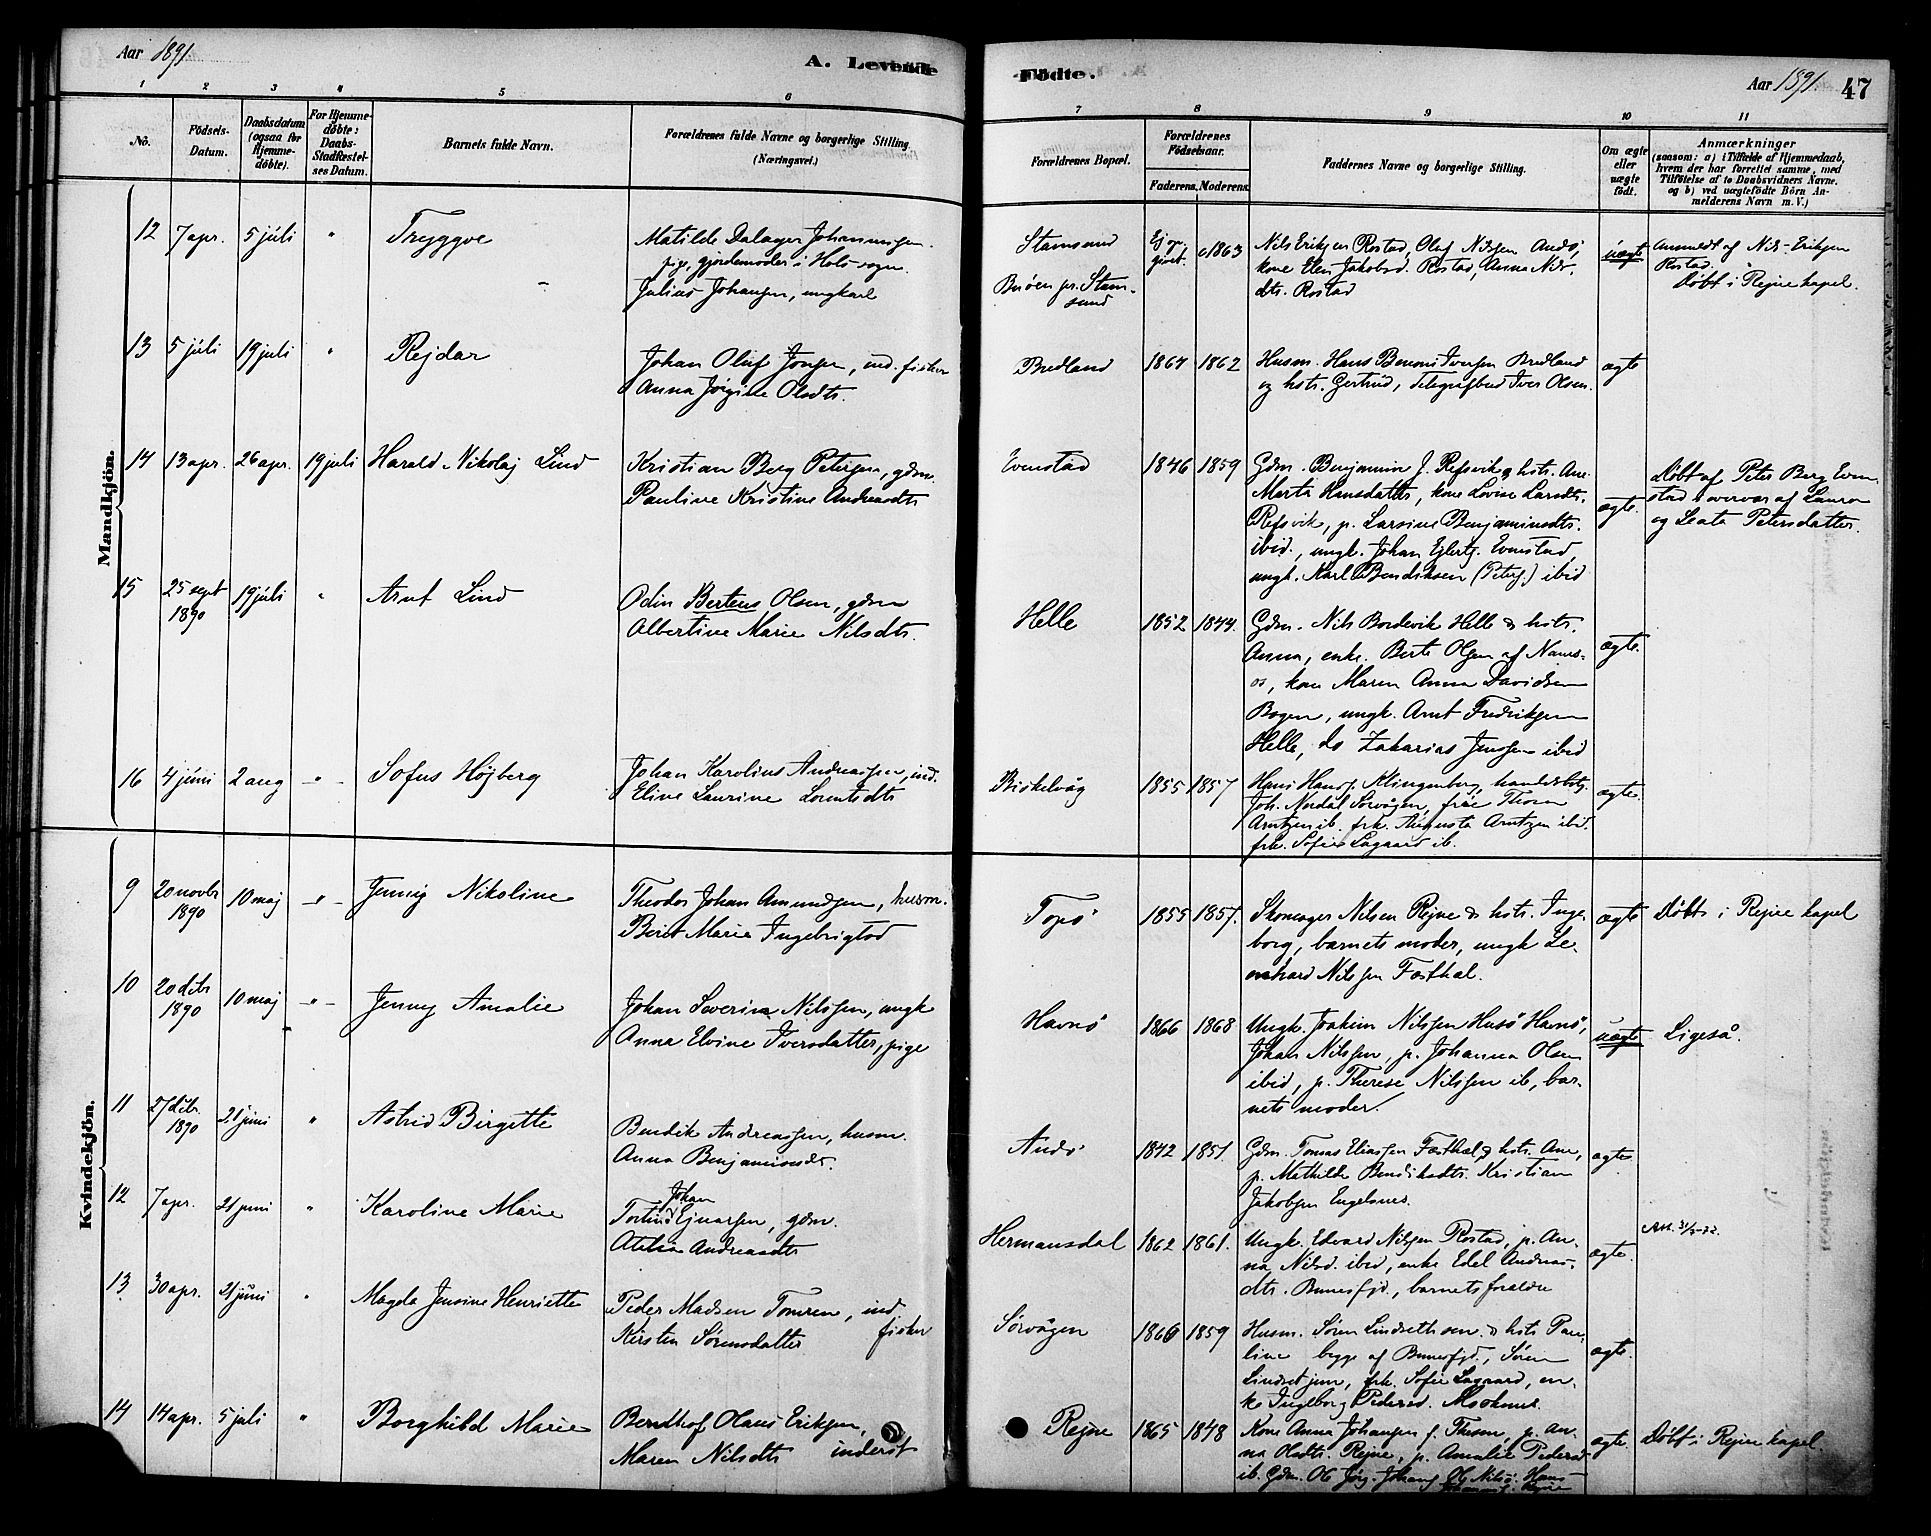 Aar 1891
A. Levende
Födte.
Aar 1891.
47
1 2 3 4 5 6
7 8 9 10 11
No.
Födsels-
Datum.
Daabsdatum
(ogsaa for
Hjemme-
döbte).
For Hjemme-
döbte:
Daabs-
Stadfæstel-
ses Datum.
Barnets fulde Navn.
Forældrenes fulde Navne og borgerlige Stilling
(Næringsvei.)
Forældrenes Bopæl.
Forældrenes
Födselsaar.
Faderens. Moderens.
Faddernes Navne og borgerlige Stilling.
Om ægte
eller
uægte
födt.
Anmærkninger
(saasom: a) i Tilfælde af Hjemmedaab,
hvem der har forrettet samme, med
Tilföielse af to Daabsvidners Navne.
og b) ved uægtefödte Börn An-
melderens Navn m. V.)
Mandkjön.
12 7 apr. 5 júli " Tryggve
Matilde Dalager Johannesen
pige, gjordemoder i Hols sogn.
Julius Johansen, ungkarl
Stamsund
Buöen pr. Stam-
sund
Ej
givet.
1863
Nils Eriksen Rostad, Oluf Nilsen Andö,
kone Elen Jakobsd. Rostad, Anna Nils-
dtr. Rostad
uægte
Anmeldt af Nils Eriksen
Rostad.
Döbt i Rejne kapel.
13 5 júli 19 juli " Rejdar
Johan Oluf Jensen, ind. fisker
Anna Jörgine Olsdtr.
Bredland 1864 1862
Husm. Hans Benoni Iversen Bredland
og hstr. Gertrud, Telegrafbud Iver Olsen.
ægte
14 13 apr. 26 apr. 19 juli Harald Nikolaj Lind
Kristian Berg Petersen, gdm.
Pauline Kristine Andreasdtr
Evenstad 1846 1859
Gdm. Benjamin J. Refsvik & hstr. Ane
Marta Hansdatter, kone Lovise Larsdtr.
Refsvik, p. Larsine Benjaminsdtr.
ibid., ungk. Johan Ejlertg. Evenstad,
ungk. Karl Bendiksen (Peters.) ibid
ægte.
Döbt af Peter Berg Even-
stad i overvær af Laura
og Leata Petersdatter.
15 25 sept
1890
19 júli " Arnt Lind
Odin Berteus Olsen, gdm
Albertine Marie Nilsdtr.
Helle 1852 1844.
Gdm. Nils Bordevik Helle & hstr.
Anna, enke. Berte Olsen af Nams-
os, kone Maren Anna Davidsen
Bogen, ungk. Arnt Fredriksen
Helle, do Zakarias Jenssen ibid
ægte.
16 4 júni 2 aug " Sofus Höjberg
Johan Karolius Andreassen, ind.
Eline Laurine
Birkelvåg 1855 1857
Hans Hanss. Klingenberg, handelsbetj.
Joh. Nordal Sörvågen, frúe Thora
Arntzen ib. frk. Augusta Arntzen ibid.
frk. Sofie Lagaard ib.
ægte.
Kvindekjön.
9 20 novbr
1890
10 maj " Jenny Nikoline
Theodor Johan Amundsen, husm.
Berit Marie Ingebrigtsd
Topö 1855 1857.
Skomager Nilsen Rejne & hstr. Inge-
borg, barnets moder, ungk Le-
onhard Nilssen Fosthal.
ægte
Döbt i Rejne kapel
10 20 dcbr
1890
10 maj " Jenny Amalie
Johan Severin Nilssen, ungk
Anna Elvine Iversdatter, pige
Havnö 1866 1868
Ungk. Joakim Nilssen Husö Havnö,
Johan Nilssen, p. Johanna Olsen
ibid, p. Therese Nilssen ib, bar-
nets moder.
uægte
Ligeså.
11 27 dcbr.
1890
21 juni " Astrid Birgitte
Bendik Andreassen, husm.
Anna Benjaminsdr.
Andö 1842 1851.
Gdm. Tomas Eliassen Fosthal & hstr. Ane,
p. Mathilde Bendiksdtr. Kristian
Jakobsen Engelsnes.
ægte
12 7 apr. 21 juni " Karoline Marie
Johan
Einarsen, gdm.
Atelia Andreasdtr
Hermansdal 1862 1861.
Ungk. Edvard Nilsen Rostad, p. An-
na Nilsd. ibid, enke Edel Andreas-
dtr. Bunesfjd., barnets forældre
ægte.
13 30 apr. 21 júni " Magda Jensine Henriette
Peder Madsen Tomren, ind
fisker
Kirsten Sörensdatter
Sörvågen 1860 1859
Husm. Sören Lindseth sen. & hstr Pau-
line begge af Bunesfjd., Sören
Lindset jun, frk. Sofie Lagaard, en-
ke Ingeborg Pedersd. Moskenes.
ægte.
14 14 apr. 5 juli " Borghild Marie
Berdthof Olaus Eriksen,
inderst
Maren Nilsdtr
Rejne 1865 1848
Kone Anna Johansen f. Thesen, p. An-
na Olsdtr. Rejne, p. Amalie Pedersd
ægte.
Döbt i Rejne kapel.